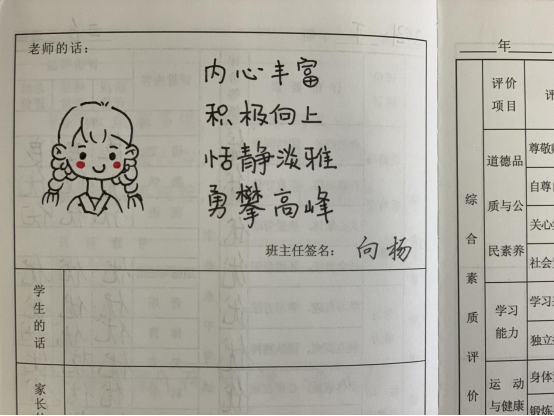 老师的话:
内心丰富
积极向上
恬静淡雅
勇攀高峰
班主任签名: 向杨
学生的话
年
评价项目
综合素质评价
道德品质与公民素养
尊敬
自尊
关心
社会
学习能力
学习
独立
运动与健康
身体
锻炼